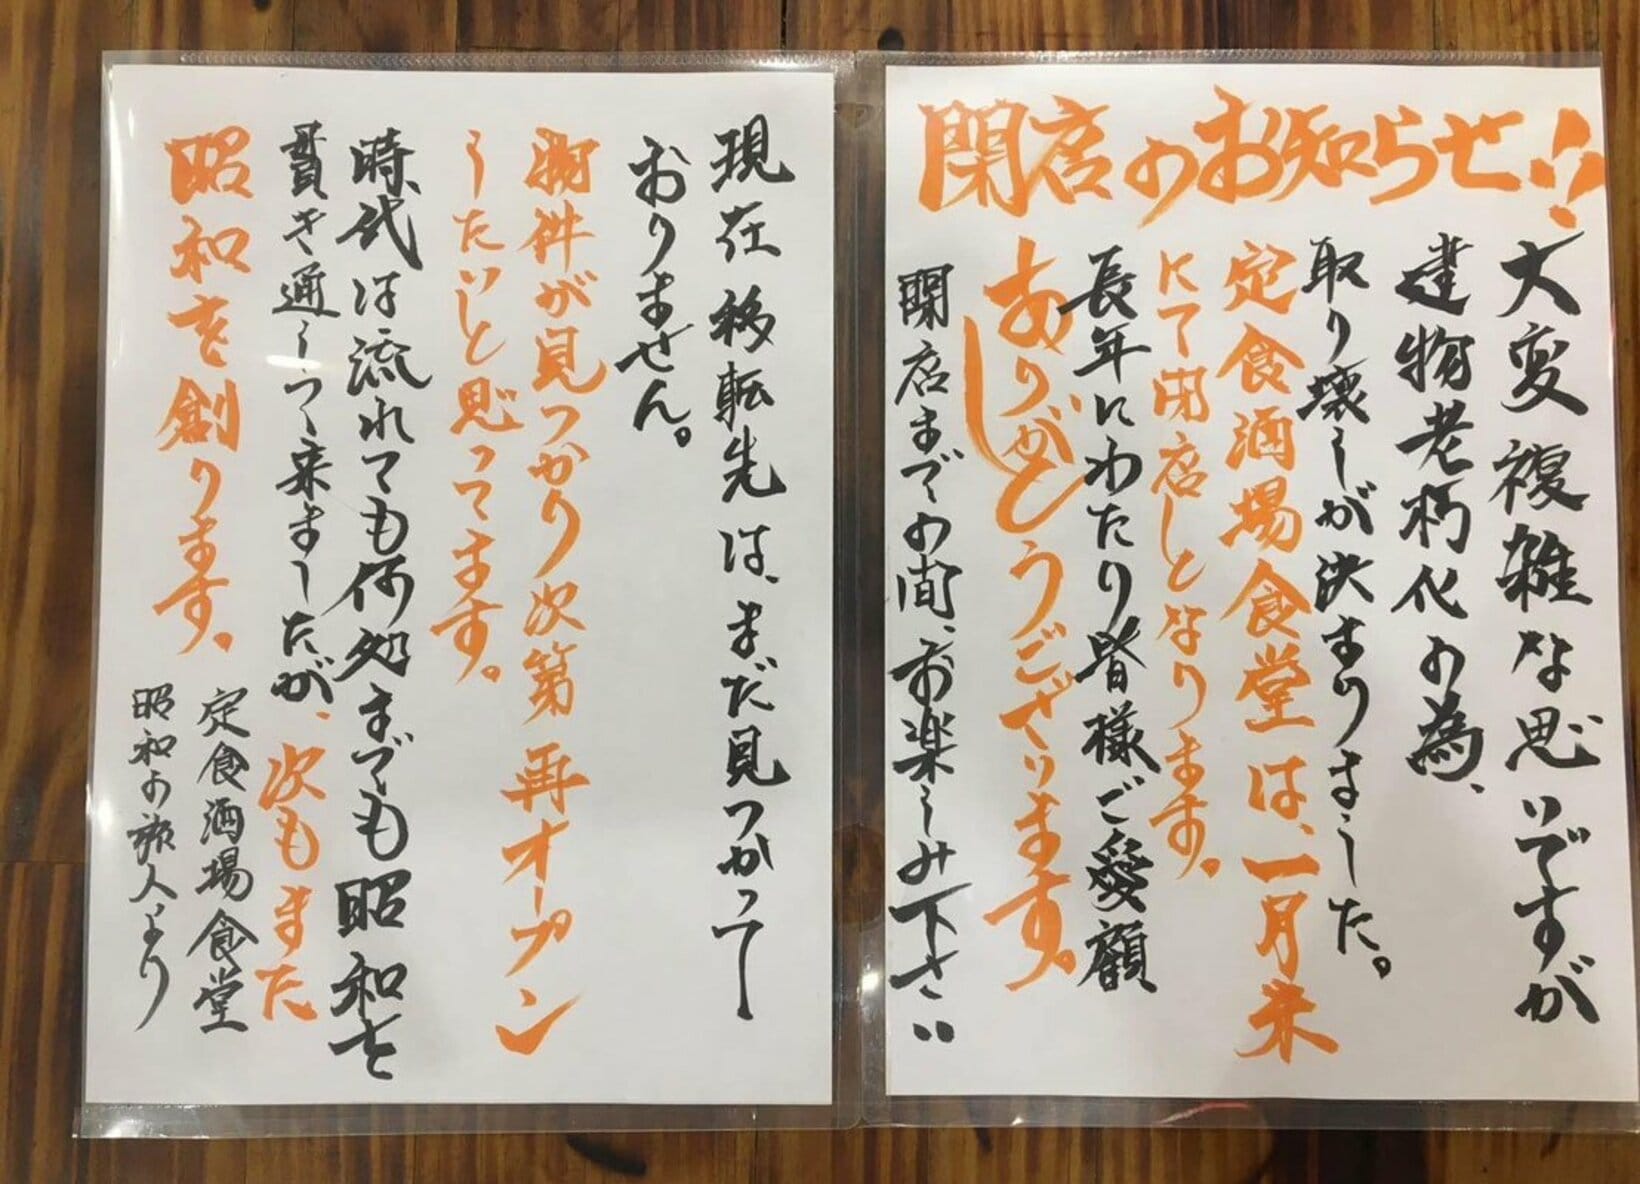 閉店のお知らせ!!
大変複雑な思いですが
建物老朽化の為、
取り壊しが決まりました。
定食酒場食堂は、一月末
にて閉店となります。
長年にわたり皆様ご愛顧
ありがとうございます。
閉店までの間、お楽しみ下さい
現在移転先は、まだ見つかって
おりません。
物件が見つかり次第再オープン
したいと思ってます。
時代は流れても何処までも昭和を
貫き通しつて来ましたが、次もまた
昭和を創ります。
定食酒場食堂
昭和の旅人より